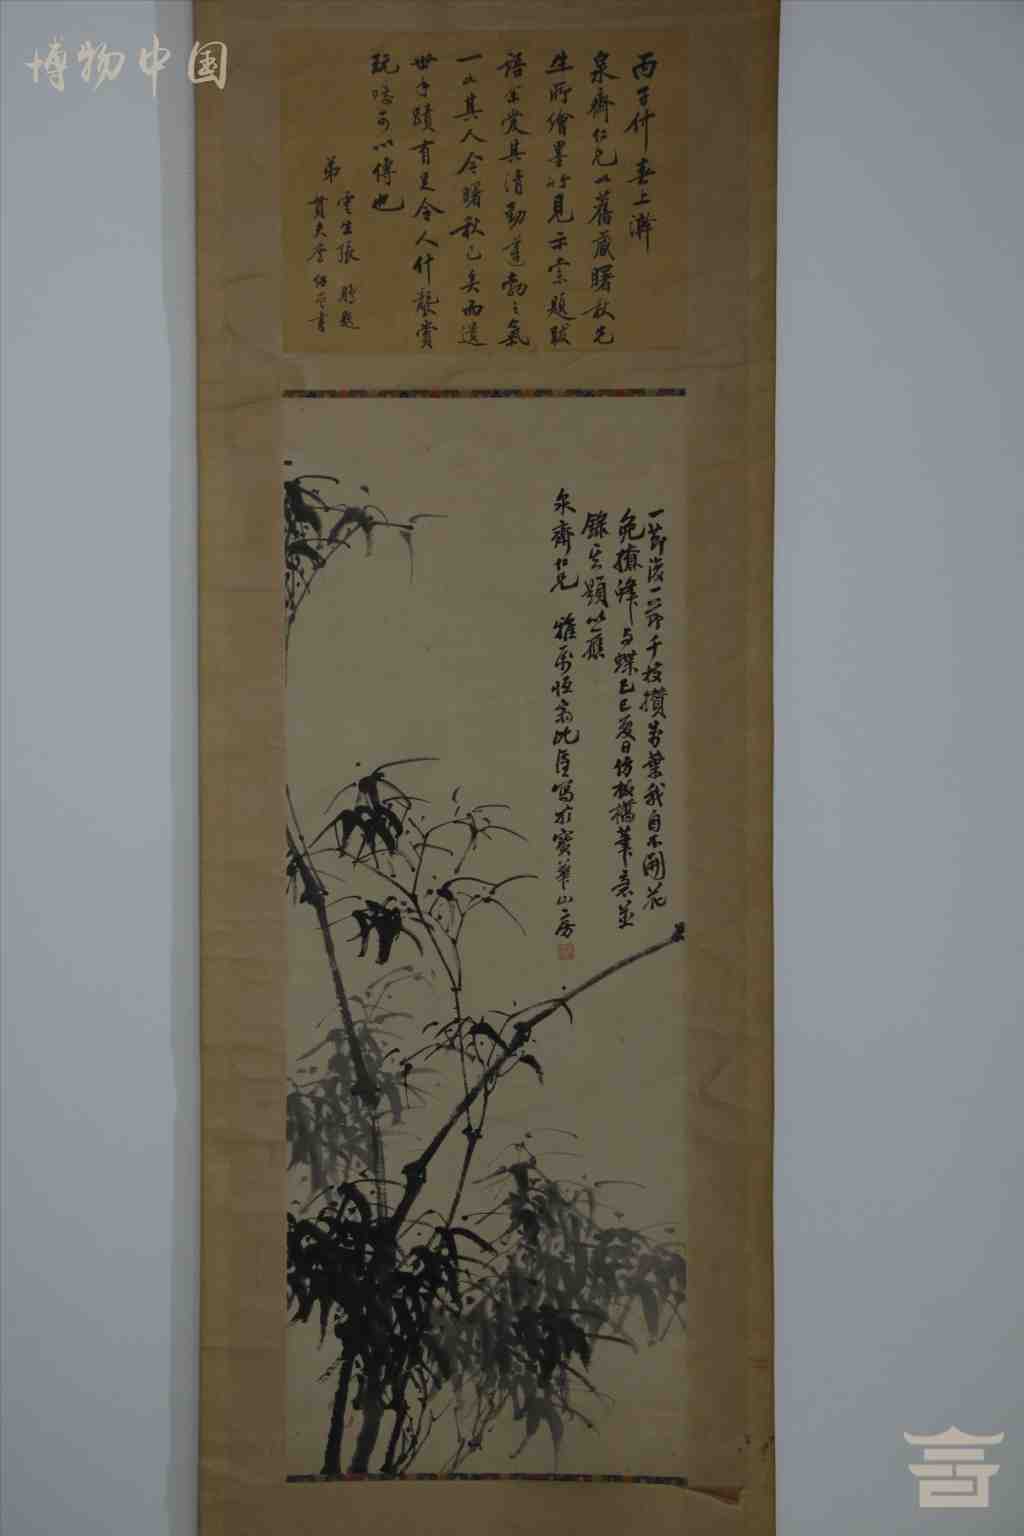 博物中国
丙子仲春上澣
泉齋仁兄以舊藏曙秋先
生所繪墨竹見示索題跋
語余愛其清勁蓬勃之氣
一如其人今曙秋已矣而遺
世手蹟有足令人什襲賞
玩噫可以傳也
弟
雲生張
題
書
一節復一節千枝攢万葉我自不開花
免撩蜂与蝶己巳夏日仿板橋筆意並
錄其題以應
泉齋仁兄 雅屬恆
寫於寶華山房